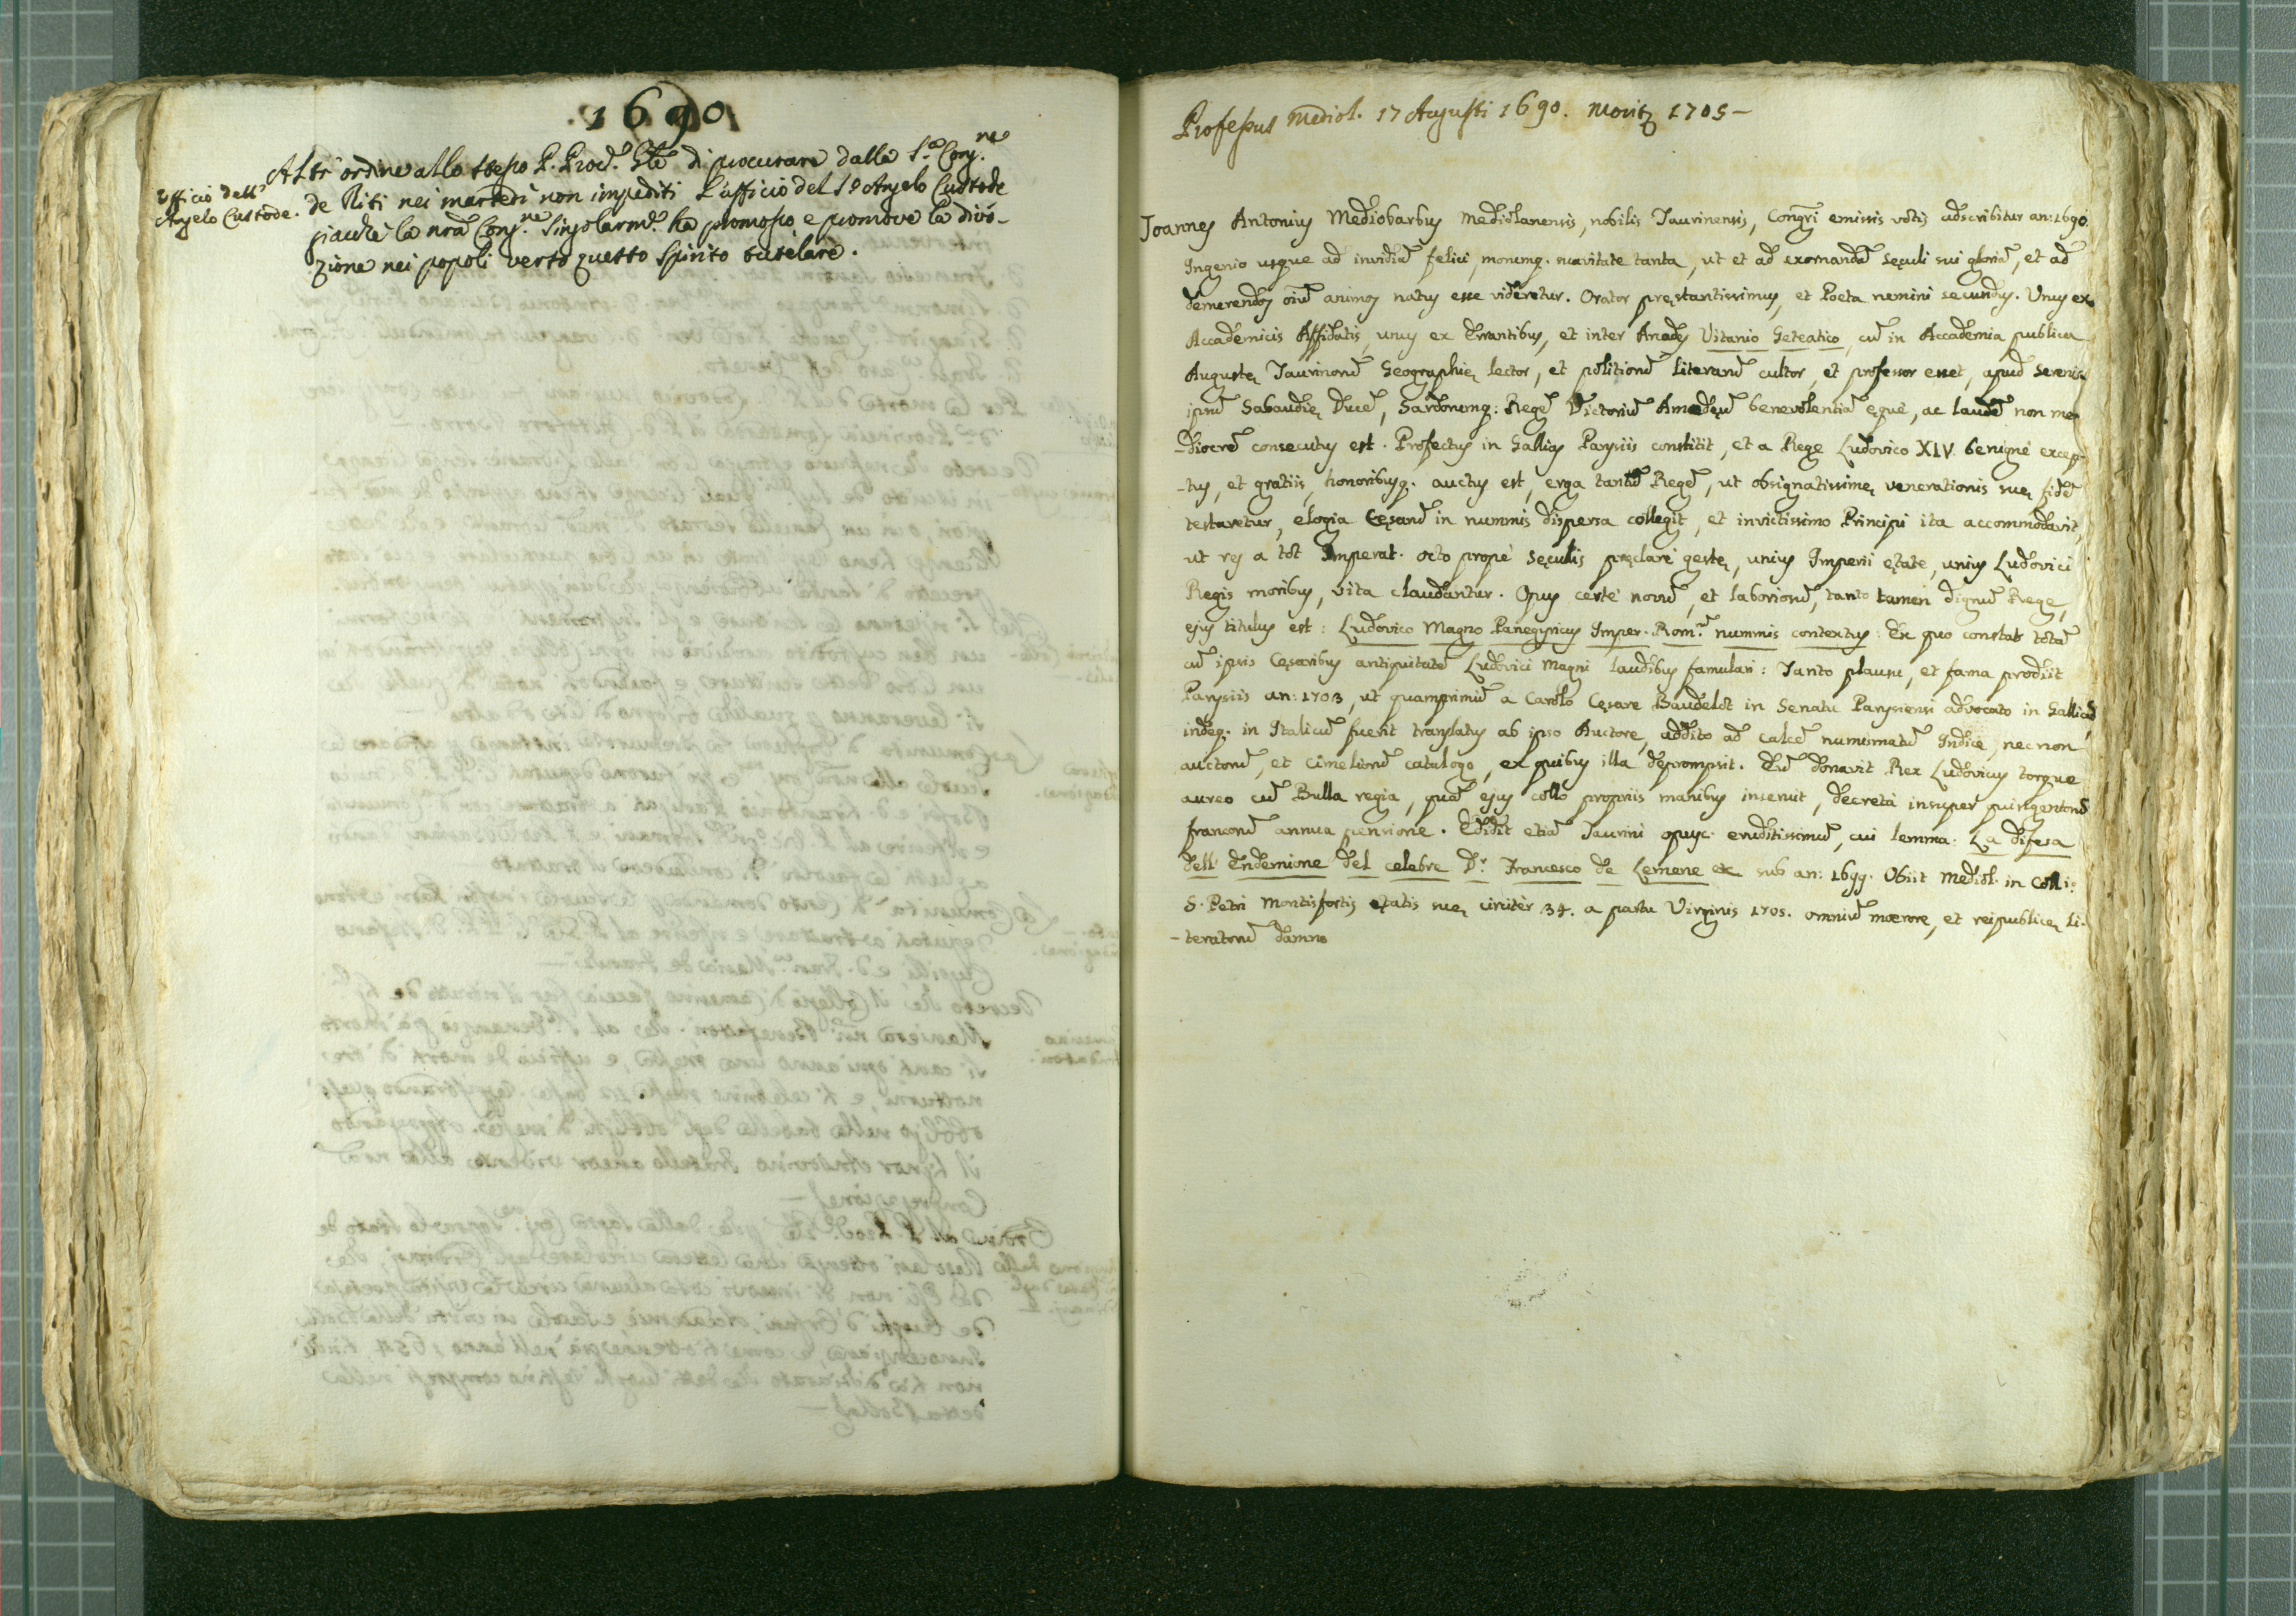 1690
Altr' ordine allo stesso P. Proc.r Gle di procurare dalla S.a Cong.ne
Ufficio dell'
Angelo Custode.
de Riti nei martedì non impediti l'ufficio del S.o Angelo Custode
giacchè la nrã Cong.ne singolarm.e ha promosso e promove la divo-
zione nei popoli verso questo Spirito tutelare.
Professus Mediol. 17 Augusti 1690. Moritʒ 1705 -
Joannes Antonius Mediobarbus Mediolanensis, nobilis Taurinensis, Congrî emissis votis adscribitur an: 1690.
Ingenio usque ad invidiã felici, morumq. suavitate tanta, ut et ad exornandã sęculi sui gloriã, et ad
demerendos oiũ animos natus esse videretur. Orator pręstantissimus, et Poeta nemini secundus. Unus ex
Accademicis Affidatis, unus ex Errantibus, et inter Arcades Vitanio Geteatico, cũ in Accademia publica
Augustę Taurinorũ Geographię lector, et politiorũ literarũ cultor, et professor esset, apud Serenis-
simũ Sabaudię Ducẽ, Sardorumq: Regẽ Victoriũ Amedęũ benevolentiã ęquè, ac laudẽ non me-
-diocrẽ consecutus est. Profectus in Gallias Parysiis constitit, et a Rege Ludovico XIV benignè excep-
-tus, et gratiis, honoribusq. auctus est, erga tantũ Regẽ, ut obsignatissimę venerationis suę fidẽ
testaretur, elogia Cęsarũ in nummis dispersa collegit, et invictissimo Principi ita accommodavit,
ut res a tot Imperat. octo propè sęculis pręclarè gestę, unius Imperii ętate, unius Ludovici
Regis moribus, vita claudantur. Opus certè novũ, et laboriosũ, tanto tamen dignũ Rege,
ejus titulus est: Ludovico Magno Panegyricus Imper. Rom.m nummis contextus: Ex quo constat totã
cũ ipsis Cęsaribus antiquitatẽ Ludovici Magni laudibus famulari: Tanto plausu, et fama prodiit
Parysiis an: 1703, ut quamprimũ a Carolo Cęsare Baudelot in Senatu Parysiensi advocato in Gallicũ,
indeq. in Italicũ fuerit translatus ab ipso Auctore, addito ad calcẽ numismatũ Indice, nec non
auctorũ, et cimeliorũ catalogo, ex quibus illa deprompsit. Eũ donavit Rex Ludovicus torque
aureo cũ Bulla regia, quã ejus collo propriis manibus inseruit, decretà insuper quingentorũ
francorũ annua pensione. Edidit etiã Taurini opusc. eruditissimũ, cui lemma: La difesa
dell' Endemione del celebre D.r Francesco de Lemene etc sub an: 1699. Obiit Mediol. in Coll.o
S. Petri Montisfortis ętatis suę circitèr 34. a partu Virginis 1705. omniũ mœrore, et reipublicę li-
-teratorũ damno